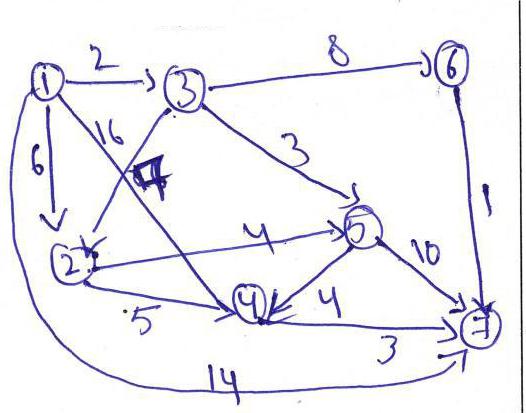 2
8
1
3
6
16
6
7
3
1
2
4
5
10
5
4
4
3
7
14